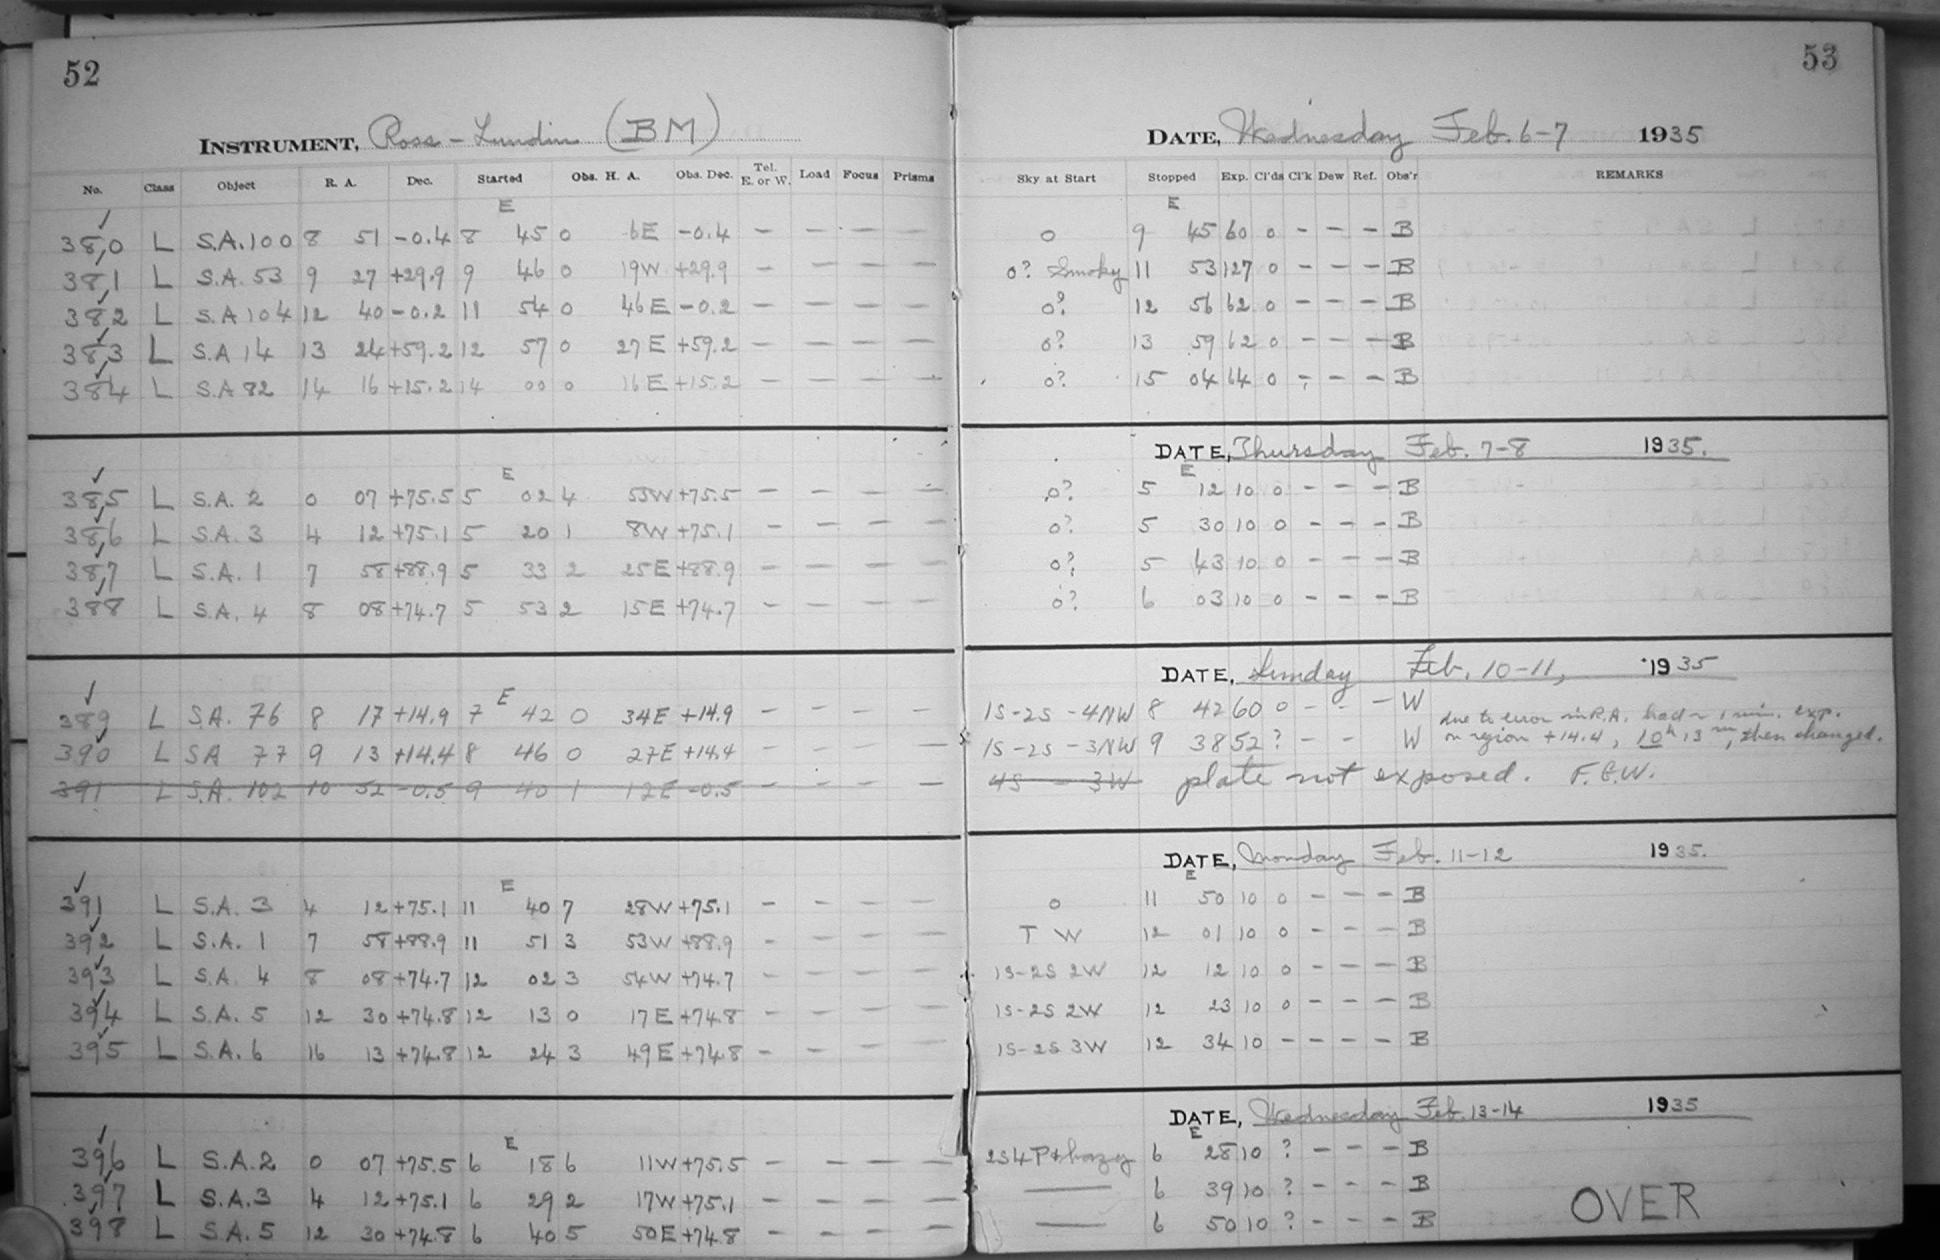 52
INSTRUMENT, Ross-Lundin (BM)
No. Class Object R. A. Dec. Started Obs. H. A. Obs. Dec. Tel. E. or W. Load Focus Prisms
E
380 L S.A.100 8 51 -0.4 8 45 0 6E -0.4 - - - -
381 L S.A. 53 9 27 +29.9 9 46 0 19W +29.9 - - - -
382 L S.A 104 12 40 -0.2 11 54 0 46E -0.2 - - - -
383 L S.A 14 13 24 +59.2 12 57 0 27E +59.2 - - - -
384 L S.A 82 14 16 +15.2 14 00 0 16E +15.2 - - - -
E
385 L S.A. 2 0 07 +75.5 5 02 4 55W +75.5 - - - -
386 L S.A. 3 4 12 +75.1 5 20 1 8W +75.1 - - - -
387 L S.A. 1 7 58 +88.9 5 33 2 25E +88.9 - - - -
388 L S.A. 4 8 08 +74.7 5 53 2 15E +74.7 - - - -
E
389 L S.A. 76 8 17 +14.9 7 42 0 34E +14.9 - - - -
390 L SA 77 9 13 +14.4 8 46 0 27E +14.4 - - - -
391 L S.A. 102 10 52 -0.5 9 40 1 12E -0.5 - - - -
E
391 L S.A. 3 4 12 +75.1 11 40 7 28W +75.1 - - - -
392 L S.A. 1 7 58 +88.9 11 51 3 53W +88.9 - - - -
393 L S.A. 4 8 08 +74.7 12 02 3 54W +74.7 - - - -
394 L S.A. 5 12 30 +74.8 12 13 0 17E +74.8 - - - -
395 L S.A. 6 16 13 +74.8 12 24 3 49E +74.8 - - - -
E
396 L S.A.2 0 07 +75.5 6 18 6 11W +75.5 - - - -
397 L S.A.3 4 12 +75.1 6 29 2 17W +75.1 - - - -
398 L S.A.5 12 30 +74.8 6 40 5 50E +74.8 - - - -
53
DATE, Wednesday Feb. 6-7 1935
Sky at Start Stopped Exp. Cl'ds Cl'k Dew Ref. Obs'r REMARKS
E
0 9 45 60 0 - - - B
0? Smoky 11 53 127 0 - - - B
0? 12 56 62 0 - - - B
0? 13 59 62 0 - - - B
0? 15 04 64 0 - - - B
DATE, Thursday Feb. 7-8 1935.
E
0? 5 12 10 0 - - - B
0? 5 30 10 0 - - - B
0? 5 43 10 0 - - - B
0? 6 03 10 0 - - - B
DATE, Sunday Feb. 10-11, 1935
1S-2S-4NW 8 42 60 0 - - - W
due to error in R.A. had ~ 1 min. exp.
1S-2S-3NW 9 38 52 ? - - W on region +14.4, 10h 13m, then changed.
4S - 3W plate not exposed. F.E.W.
DATE, Monday Feb. 11-12 1935.
E
0 11 50 10 0 - - - B
T W 12 01 10 0 - - - B
1S-2S 2W 12 12 10 0 - - - B
1S-2S 2W 12 23 10 0 - - - B
1S-2S 3W 12 34 10 - - - - B
DATE, Wednesday Feb. 13-14 1935
E
2S4P+hazy 6 28 10 ? - - - B
— 6 39 10 ? - - - B
— 6 50 10 ? - - - B
OVER